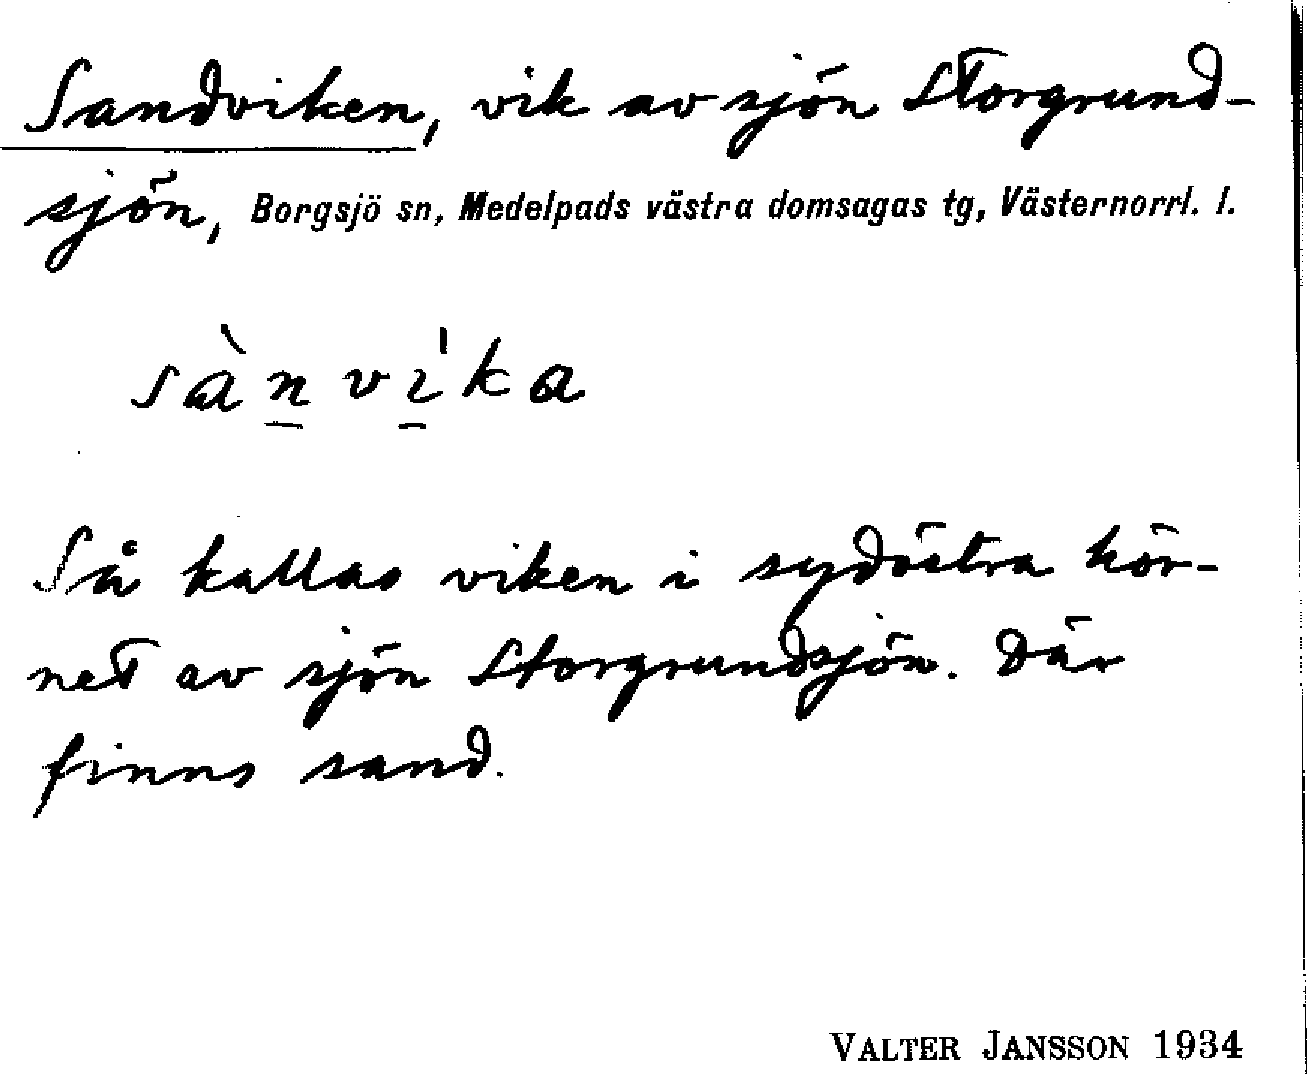 Sandviken, vik av sjön Storgrund-
sjön, Borgsjö sn, Medelpads västra domsagas tg, Västernorrl. l.
sàn̲vi̲̍ka
Så kallas viken i sydöstra hör-
net av sjön Storgrundsjön. Där
finns sand.
VALTER JANSSON 1934